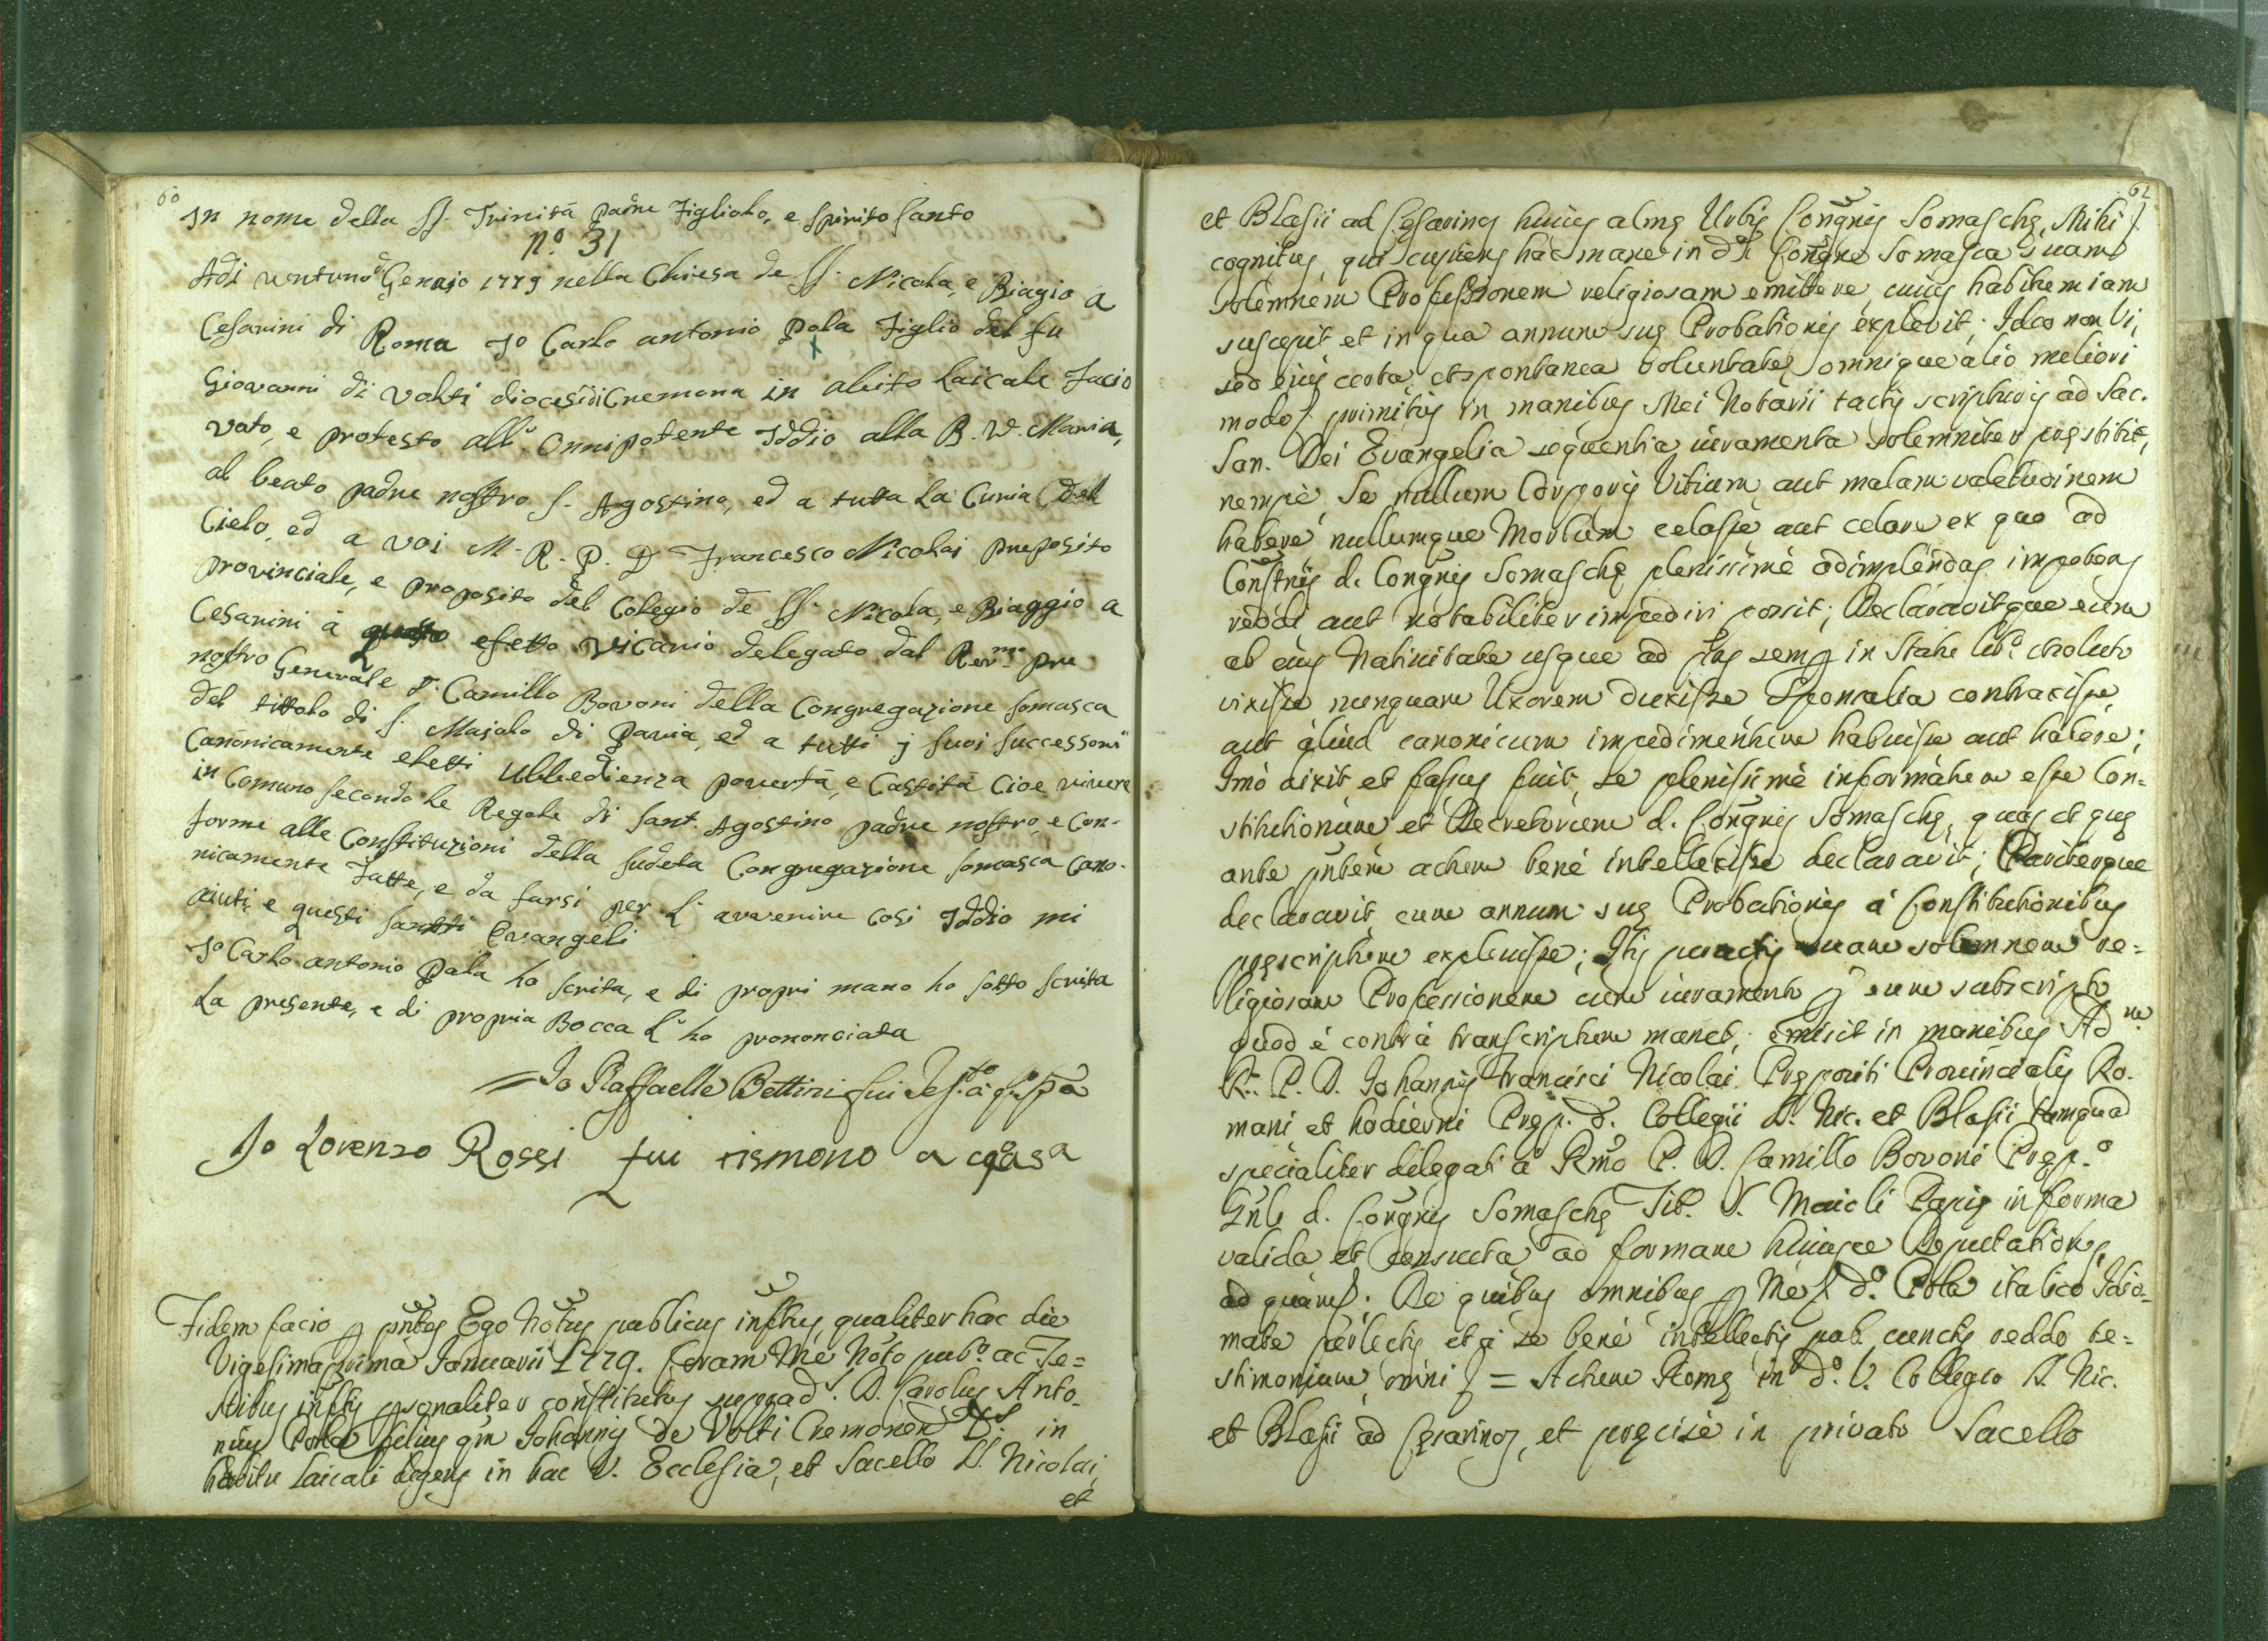 60
In nome della SS. Trinità padre Figliolo, e Spirito Santo
N.º 31
Adì ventuno Genajo 1779 nella Chiesa de SS. Nicola, e Biagio a
Cesarini di Roma Io Carlo antonio Pola Figlio del fu
Giovanni di Volti diocesi di Cremona in abito Laicale Facio
Voto, e protesto all' Onnipotente Iddio alla B. V. Maria,
al beato padre nostro S. Agostino, ed a tutta la Curia del
Cielo, ed a voi M. R. P. D. Francesco Nicolai preposito
provinciale, e proposito del Colegio de SS. Nicola, e Biaggio a
Cesarini à efetto Vicario delegato dal Rev.mo pre
nostro Generale D. Camillo Bovoni della Congregazione somasca
del tittolo di S. Majolo di Pavia, ed a tutti j suoi successori
Canonicamente eletti Ubbedienza povertà, e Castità Cioe vivere
in Comuno secondo le Regole di Sant. Agostino padre nostro, e Con-
forme alle Constituzioni della sudeta Congregazione somasca Cano-
nicamente Fatte, e da farsi per l' avvenire Cosi Iddio mi
aiuti, e questi santi Evangeli
Io Carlo antonio Pola ho scrita, e di propri mano ho sotto scrita
la presente, e di propria Bocca l' ho prononciata
= Io Raffaelle Bettini fui Test.o à q.to s.pa
Io Lorenzo Rossi fui tismono a coasa
Fidem facio p pntes Ego Notus publicus inftus qualiter hac die
Vigesimaprima Januarii 1779. Coram Me Noto pub.o ac Te=
stibus inftis psonaliter constitutus suprad. D. Carolus Anto-
nius Pola filius qm Johannis de Volti Cremonen in
habitu Laicali degens in hac V. Ecclesia, et Sacello SS. Nicolai,
et
61
et Blasii ad Cesarinos huius almę Urbis Congnis Somaschę, Mihi
cognitus, qui cupiens hac mane in d. Congne Somasca suam
solemnem Professionem religiosam emittere, cuius habitum iam
suscepit et in qua annum suę Probationis explevit; Ideo non Vi,
sed eius certa, et spontanea voluntate, omnique alio meliori
modo primitus in manibus Mei Notarii tactis scripturis ad Sac.
San. Dei Evangelia sequentia iuramenta solemniter pręstitit,
nempè, Se nullum Corporis Vitium, aut malam valetudinem
habere nullumque Morbum celasse, aut celare ex quo ad
Constnes d. Congnis Somaschę plenissimè adimplendas impotens
reddi aut notabiliter impediri possit; Declaravitque eum
ab eius Nativitate usque ad pns semp in Statu lib.o et soluto
vixisse nunquam Uxorem duxisse Sponsalia contraxisse,
aut aliud canonicum impedimentum habuisse aut habere;
Imò dixit, et fassus fuit, se plenissimè informatum esse Con-
stitutionum et Decretorum d. Congnis Somaschę, quas et quę
ante pntem actum benè intellexisse declaravit; Pariterque
declaravit eum annum suę Probationis à Constitutionibus
pręscriptum explevisse; Itis peractis suam solemnem re=
ligiosam Professionem cum iuramento p eum subscripto
quod è contrà transcriptum manet, emisit in manibus Ad
R. P. D. Johannis Francisci Nicolai Prępositi Provincialis Ro-
mani et hodierni Pręp. d. Collegii SS. Nic. et Blasii tamquam
specialiter delegati à Rmo P. D. Camillo Bovoni Pręp.o
Gnli d. Congnis Somaschę Tit. S. Maioli Papię in forma
valida, et consueta, ad formam huiusce Deputationis,
ad quam. De quibus omnibus p Me d.o Pola italico Idio-
mate perlectis et à se benè intellectis cunctis reddo te=
stimonium, omni = Actum Romę in d.o V. Collegio SS. Nic.
et Blasii ad Cęsarinos, et pręcisè in privato Sacello